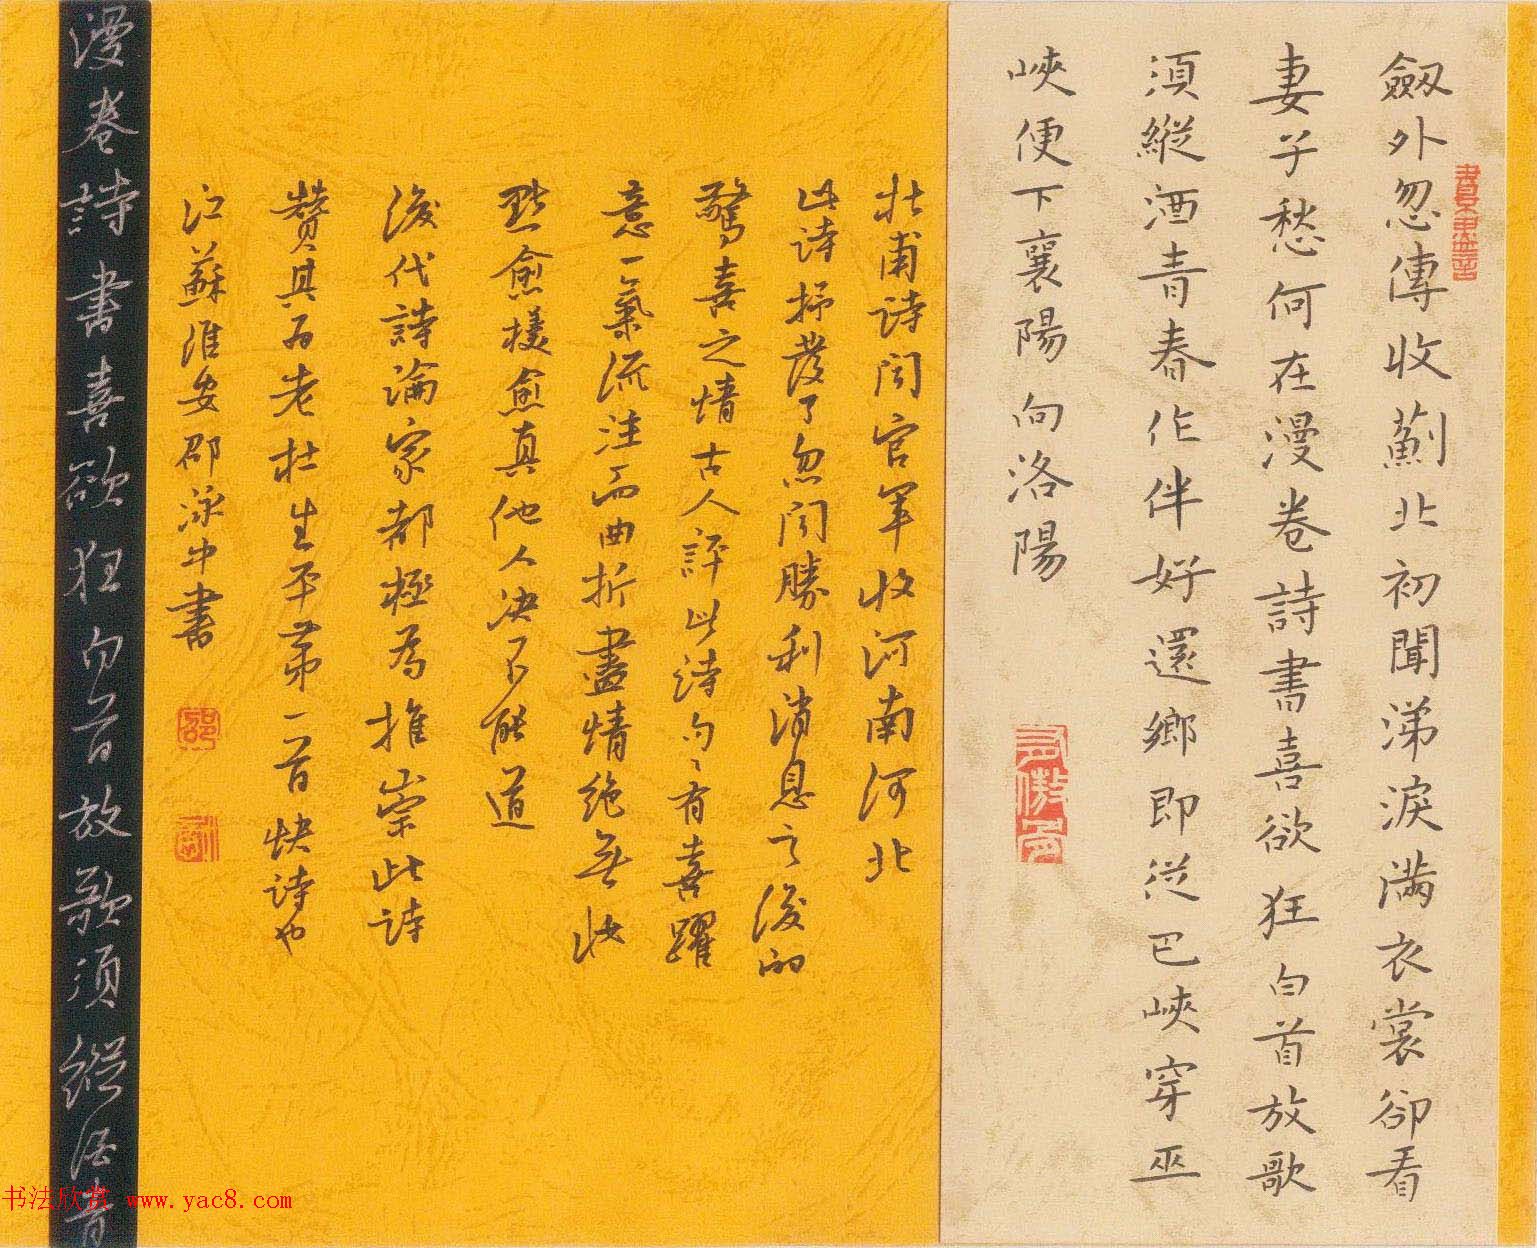 劔外忽傳收薊北初聞涕淚满衣裳卻看
妻子愁何在漫卷詩書喜欲狂白首放歌
須縱酒青春作伴好還鄉即從巴峽穿巫
峽便下襄陽向洛陽
杜甫诗闻官軍收河南河北
此诗抒發了忽闻勝利消息之後的
驚喜之情古人評此诗句句有喜躍
意一氣流注而曲折盡情絕無妆
點愈樸愈真他人决不能道
後代詩論家都極為推崇此诗
赞其为老杜生平第一首快诗也
江蘇淮安邵泳中書
邵
漫卷詩書喜欲狂白首放歌須縱酒青
书法欣赏 www.yac8.com